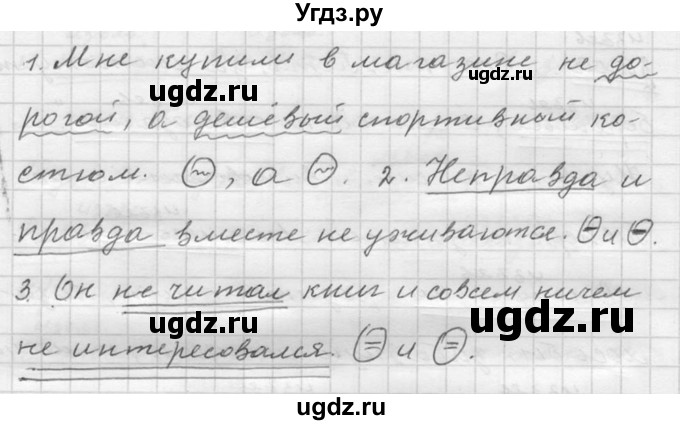 Угдз.ру
1. Мне купили в магазине не до-
рогой, а дешёвый спортивный ко-
стюм. ⊝, а ⊝. 2. Неправда и
правда вместе не уживаются. ⊖ и ⊖.
3. Он не читал книг и совсем ничем
не интересовался. ⊜ и ⊜.
ugdz.ru
ugdz.ru
ugdz.ru
ugdz.ru
ugdz.ru
ugdz.ru
ugdz.ru
ugdz.ru